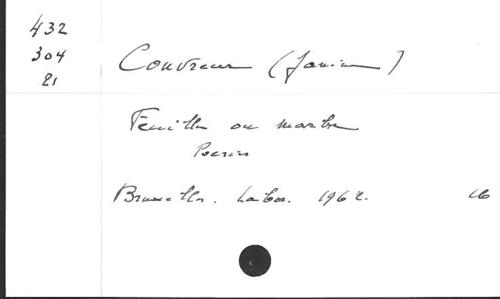 432
304
21
Couvreur (Janine)
Feuille ou marbre
Poésies
Bruxelles. Labor. 1962.
16